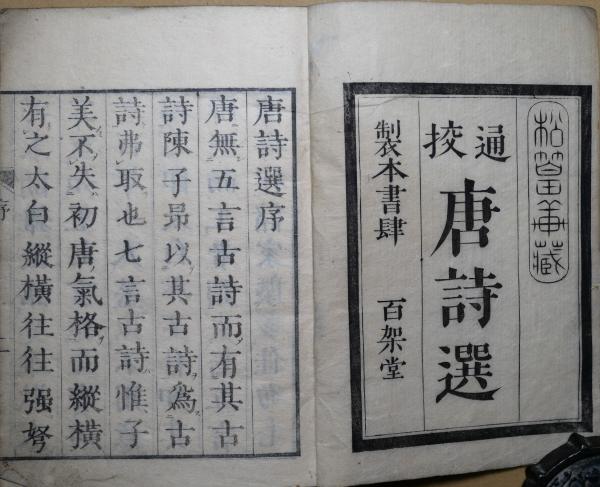 通校
唐詩選
製本書肆 百架堂
唐詩選序
唐無五言古詩而有其古
詩陳子昻以其古詩爲古
詩弗取也七言古詩惟子
美不失初唐氣格而縱横
有之太白縱横往往强弩
序